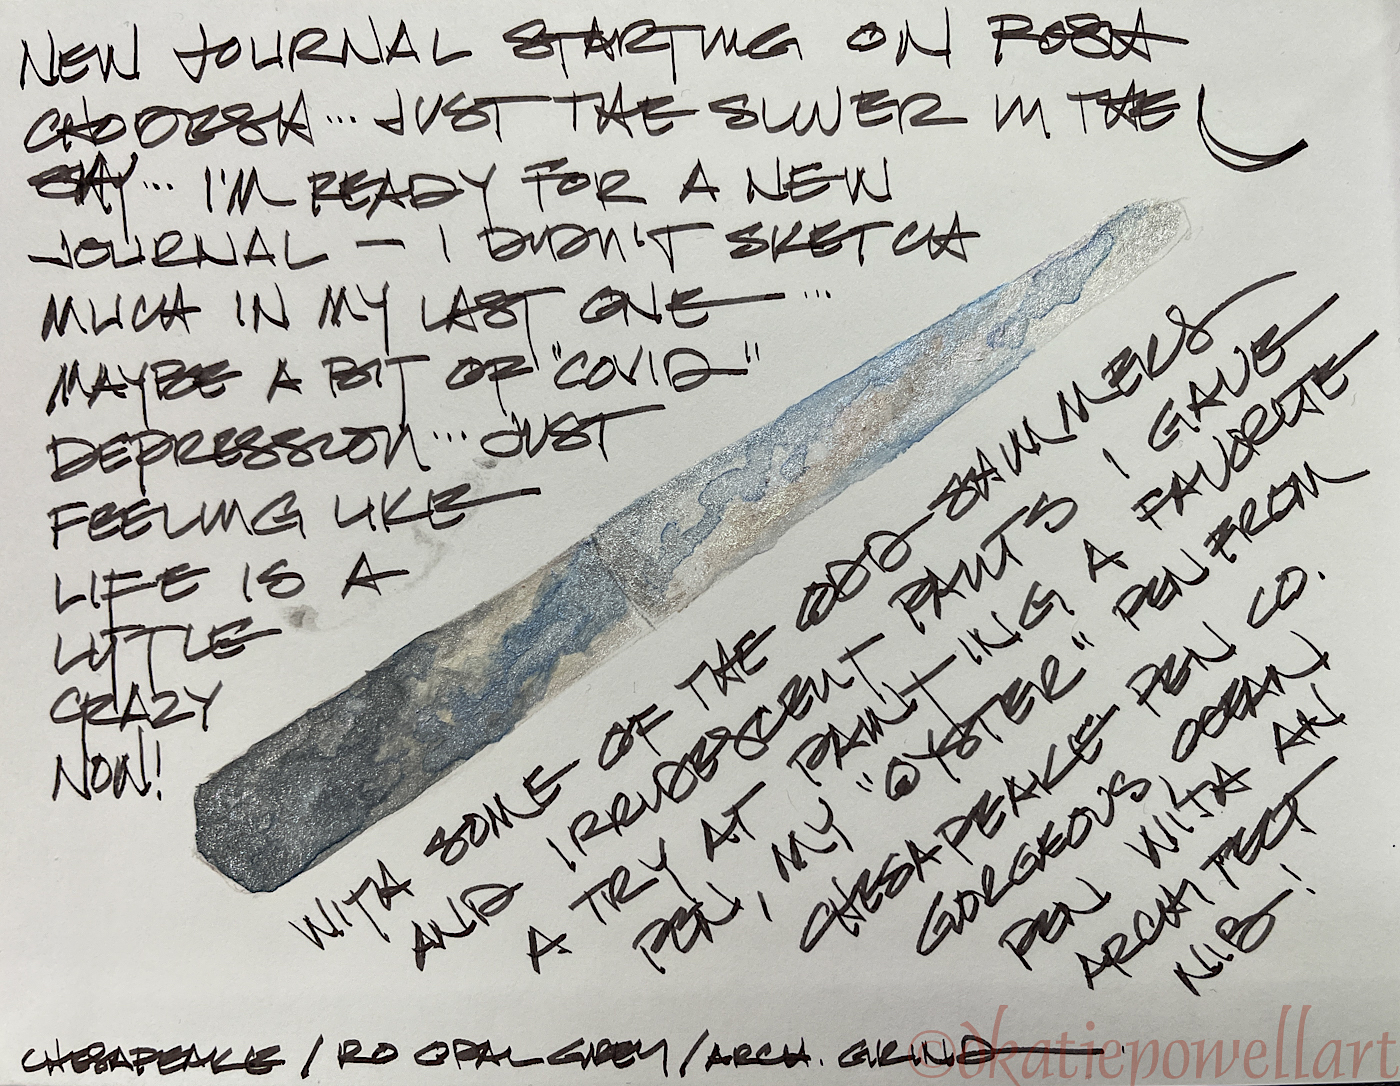 NEW JOURNAL STARTING ON ROSH
CHODESH... JUST THE SLIVER IN THE
SKY... I'M READY FOR A NEW
JOURNAL — I DIDN'T SKETCH
MUCH IN MY LAST ONE...
MAYBE A BIT OF "COVID"
DEPRESSION... JUST
FEELING LIKE
LIFE IS A
LITTLE
CRAZY
NOW!
WITH SOME OF THE ODD SHIMMERS
AND IRRUDESCENT PAINTS I GAVE
A TRY AT PAINTING A FAVORITE
PEN, MY "OYSTER" PEN FROM
CHESAPEAKE PEN CO.
GORGEOUS, OCEAN
PEN WITH AN
ARCHITECT
NIB!
CHESAPEAKE / RO OPAL GREY / ARCH. GRIND
©dkatiepowellart